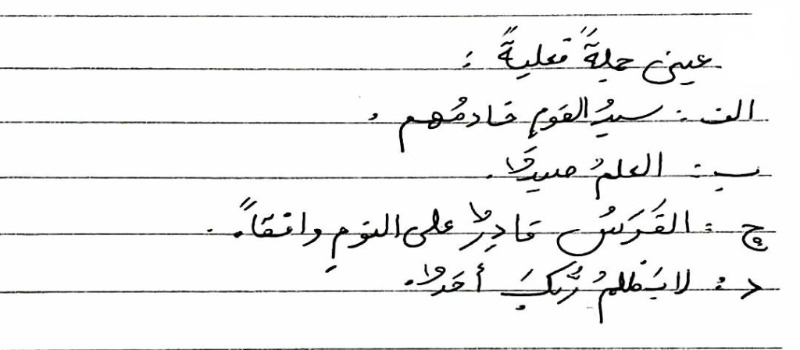 عيني جملةً فعليةً :
الف : سيدُ القومِ خادمُهم .
ب : العلمُ صيدٌ .
ج : الفَرَسُ قادِرٌ على النومِ واقفاً .
د : لا يَظلمُ رَبُّكَ أحَدٌ .